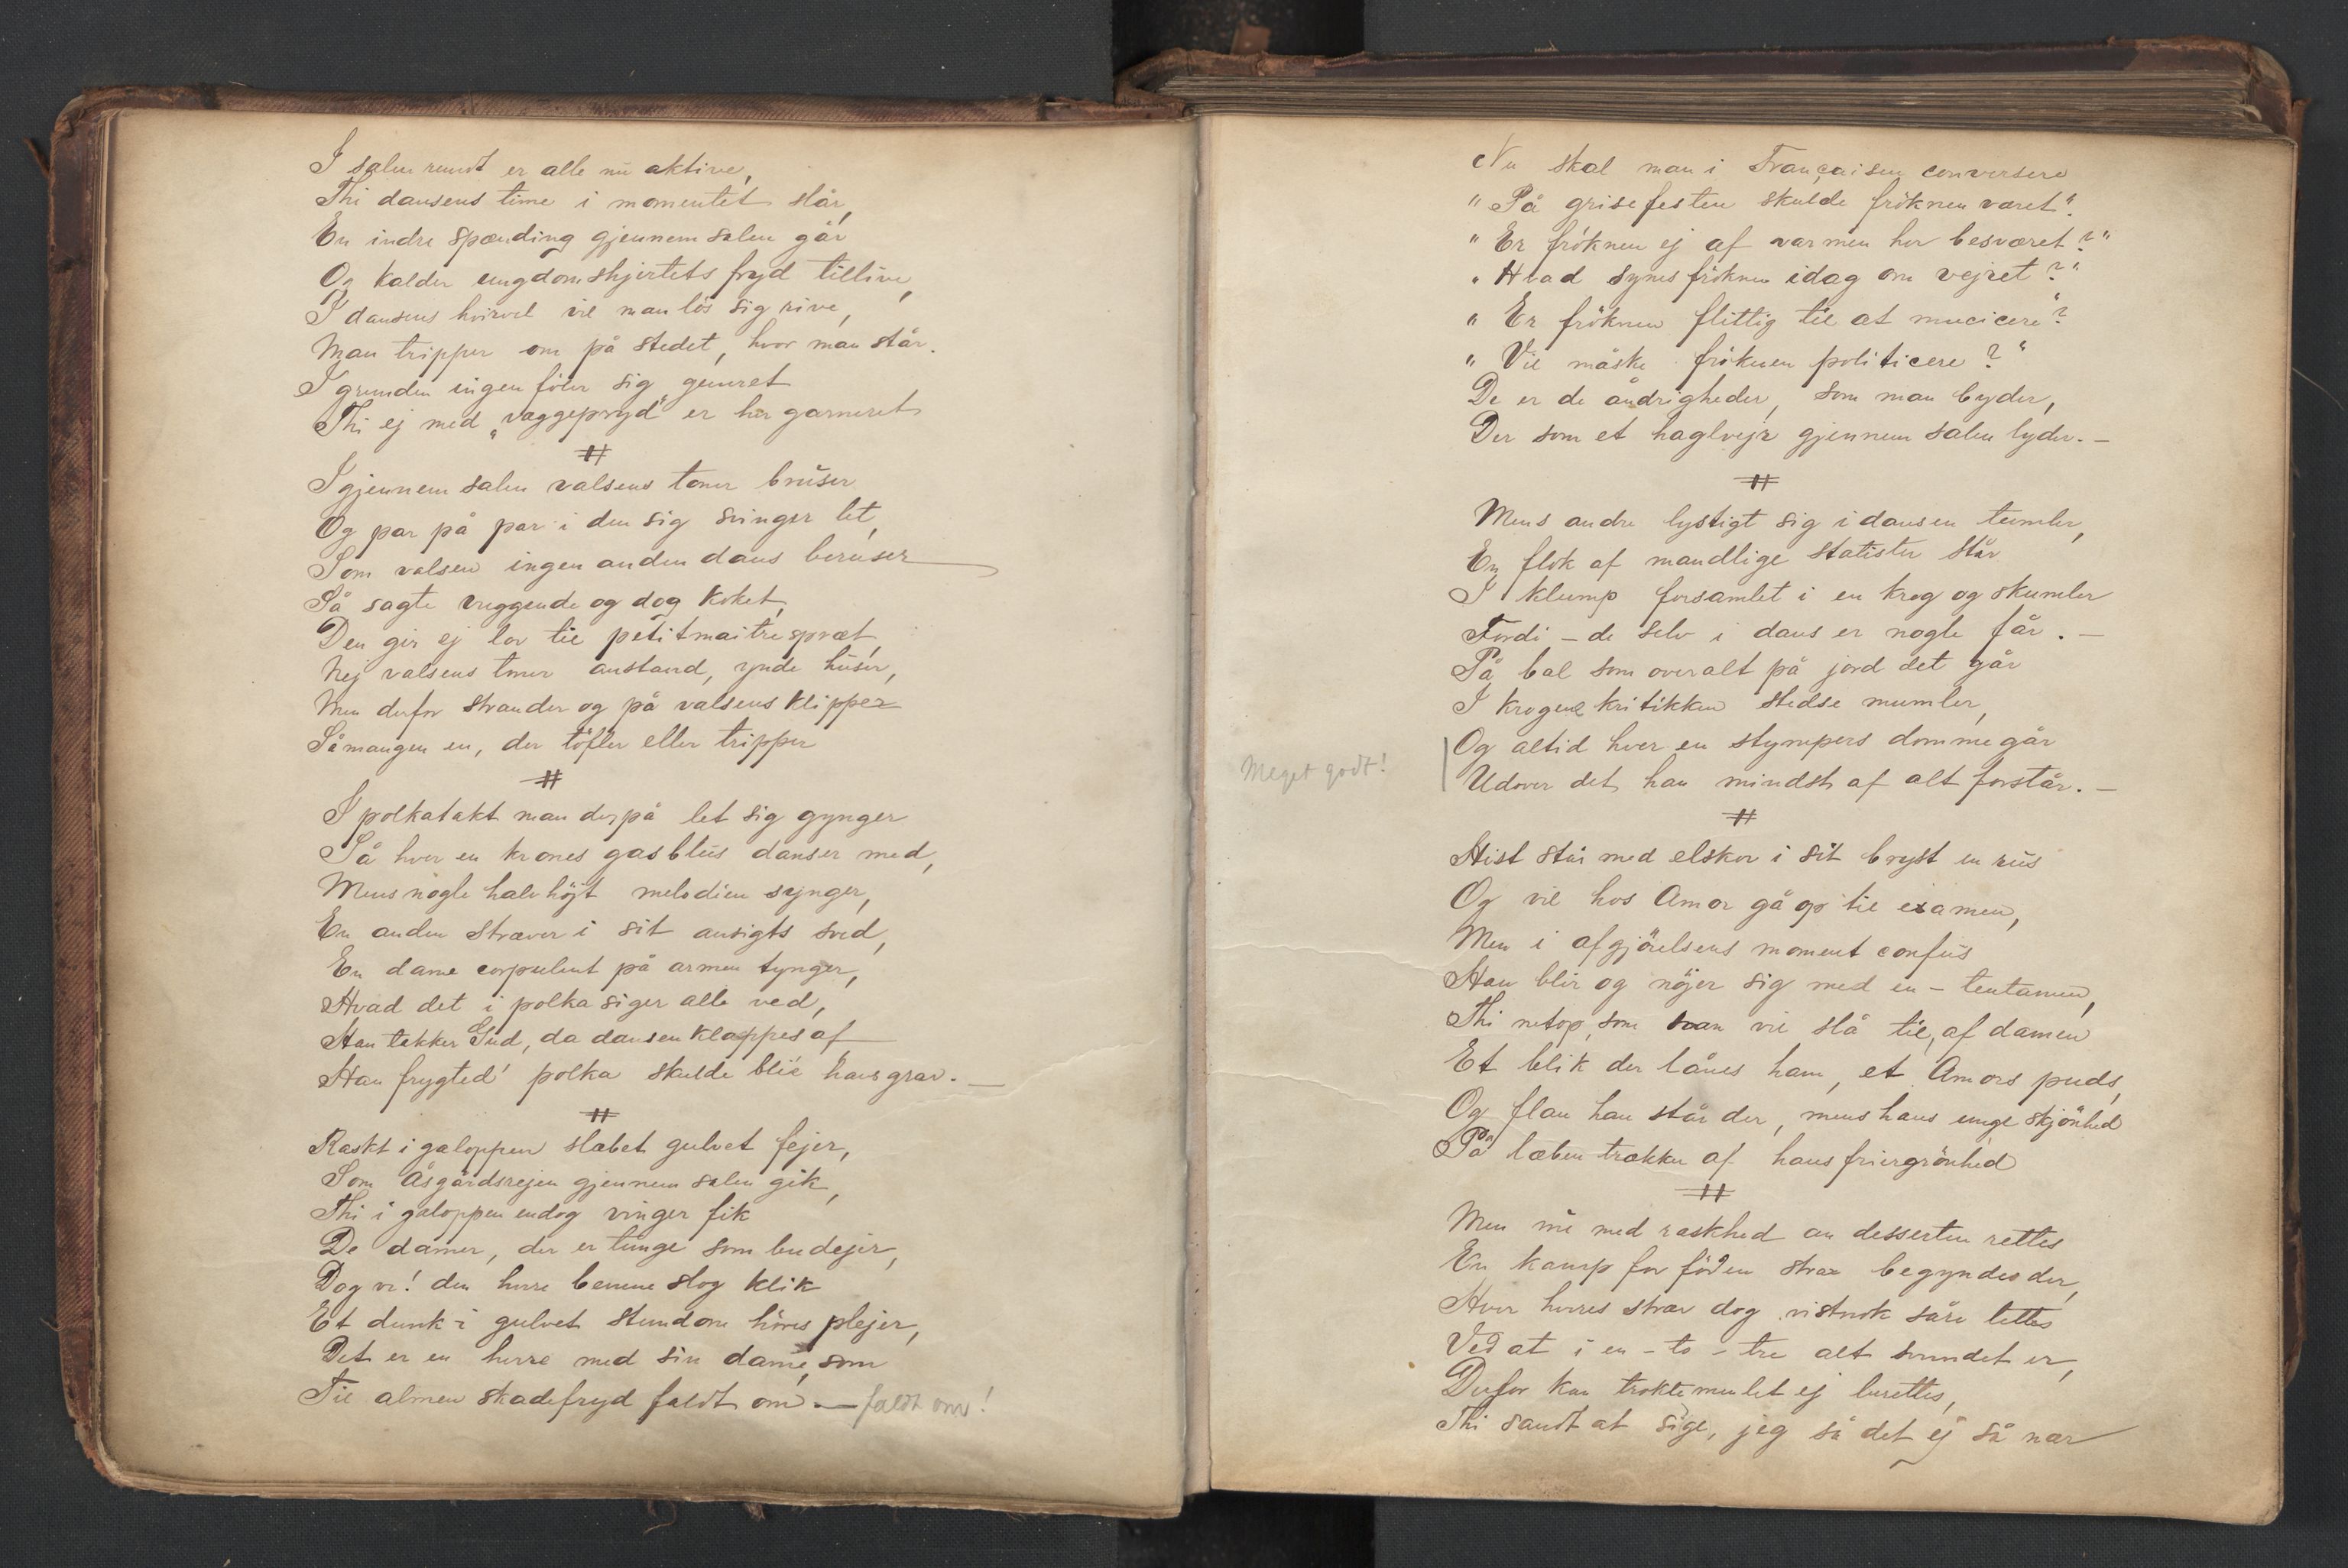 I salen rundt er alle nu aktive,
Thi dansens time i momentet slår,
En indre spænding gjennem salen går
Og kalder ungdomshjertets fryd tillive,
I dansens hvirvel vil man lös sig rive,
Man tripper om på stedet, hvor man står.
I grunden ingen föler sig generet
Thi ej med „væggepryd" er her garneret
#
Igjennem salen valsens toner brüser
Og par på par i den sig svinger let,
Som valsen ingen anden dans berüser
Så sagte vuggende og dog koket,
Den gir ej lov til petitmaitrespræt,
Nej valsens toner anstand, ynde hüser,
Men derfor strander og på valsens klipper
Såmangen en, der töfler eller tripper
#
I polkatakt man derpå let sig gynger
Så hver en krones gasblüs danser med,
Mens nogle halvhöjt melodien synger,
En anden stræver i sit ansigts sved,
En dame corpulent på armen tynger,
Hvad det i polka siger alle ved,
Han takker Gud, da dansen klappes af
Han frygted' polka skulde blie hans grav. —
#
Raskt i galoppen slæbet gulvet fejer,
Som Åsgårdsrejen gjennem salen gik,
Thi i galoppen endog vinger fik
De damer, der er tunge som budejer,
Dog ve! den herre benene slog klik
Et dunk i gulvet stundom höres plejer,
Det er en herre med sin dame, som
Til almen skadefryd faldt om. — faldt om!
Nu skal man i Françaisen conversere
"På grisefesten skulde fröknen været".
"Er fröknen ej af varmen her besværet?"
"Hvad synes fröknen idag om vejret?"
"Er fröknen flittig til at mucicere"?
"Vil måske fröknen politicere?"
De er de åndrigheder, som man byder,
Der som et haglvejr gjennem salen lyder. —
#
Mens andre lystigt sig i dansen tumler,
En flok af mandlige statister står
I klump forsamlet i en krog og skumler
Fordi — de selv i dans er nogle får. —
På bal som overalt på jord det går
I krogene kritikken stedse mumler,
Og altid hver en stympers domme går
Meget godt!
Udover det han mindst af alt forstår. —
#
Hist står med elskov i sit bryst en rüs
Og vil hos Amor gå op til examen,
Men i afgjörelsens moment confüs
Han blir og nöjer sig med en — tentamen,
Thi netop, som han vil slå til, af damen
Et blik der lånes ham, et Amors puds,
Og flau han står der, mens hans unge skjönhed
På læben trækker af hans friergrönhed
#
Men nü med raskhed an desserten rettes
En kamp for föden strax begyndes der,
Hver herres stræv dog vistnok såre lettes
Ved at i en - to - tre alt svundet er,
Derfor kan traktementet ej berettes,
Thi sandt at sige, jeg så det ej så nær